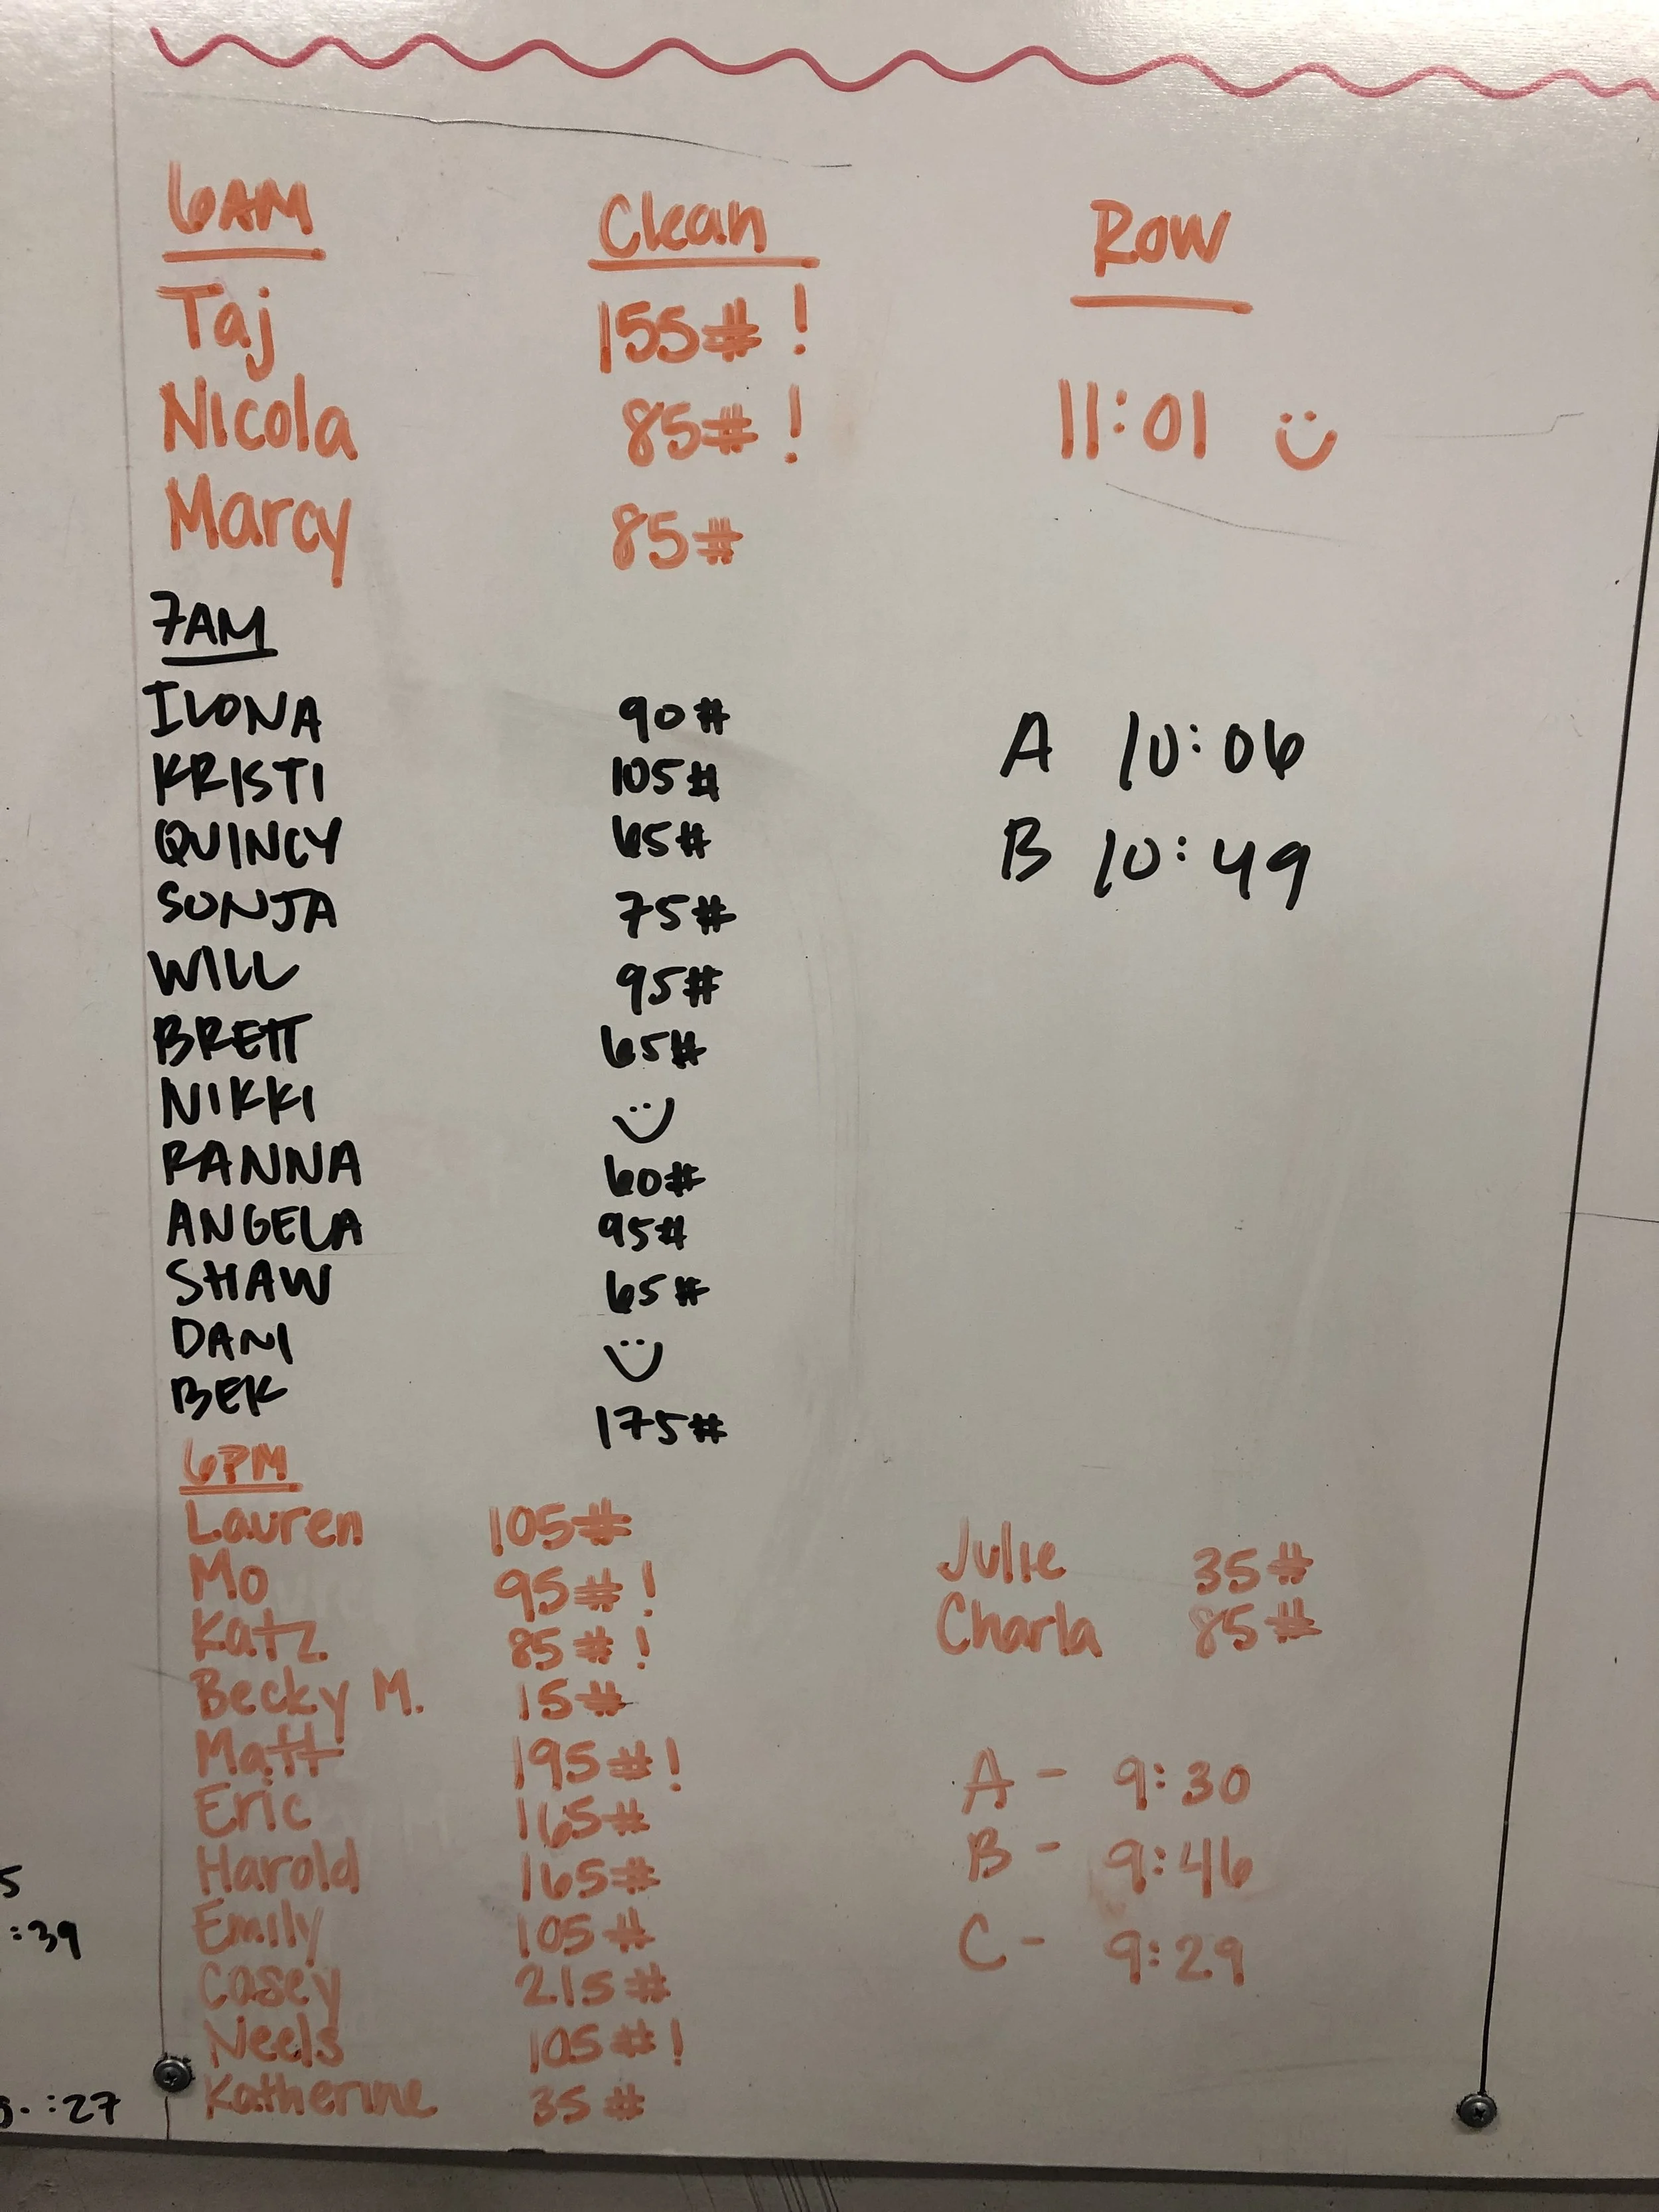 6AM Clean Row
Taj 155# !
Nicola 85# ! 11:01
Marcy 85#
7AM
ILONA 90# A 10:06
KRISTI 105#
QUINCY 65# B 10:49
SONJA 75#
WILL 95#
BRETT 65#
NIKKI
RANNA 60#
ANGELA 95#
SHAW 65#
DANI
BEK 175#
6PM
Lauren 105# Julie 35#
Mo 95# ! Charla 85#
Katz 85# !
Becky M. 15#
Matt 195# ! A - 9:30
Eric 165# B - 9:46
Harold 165#
5
Emily 105# C - 9:29
:39
Casey 215#
Neels 105# !
Katherine 35#
:27